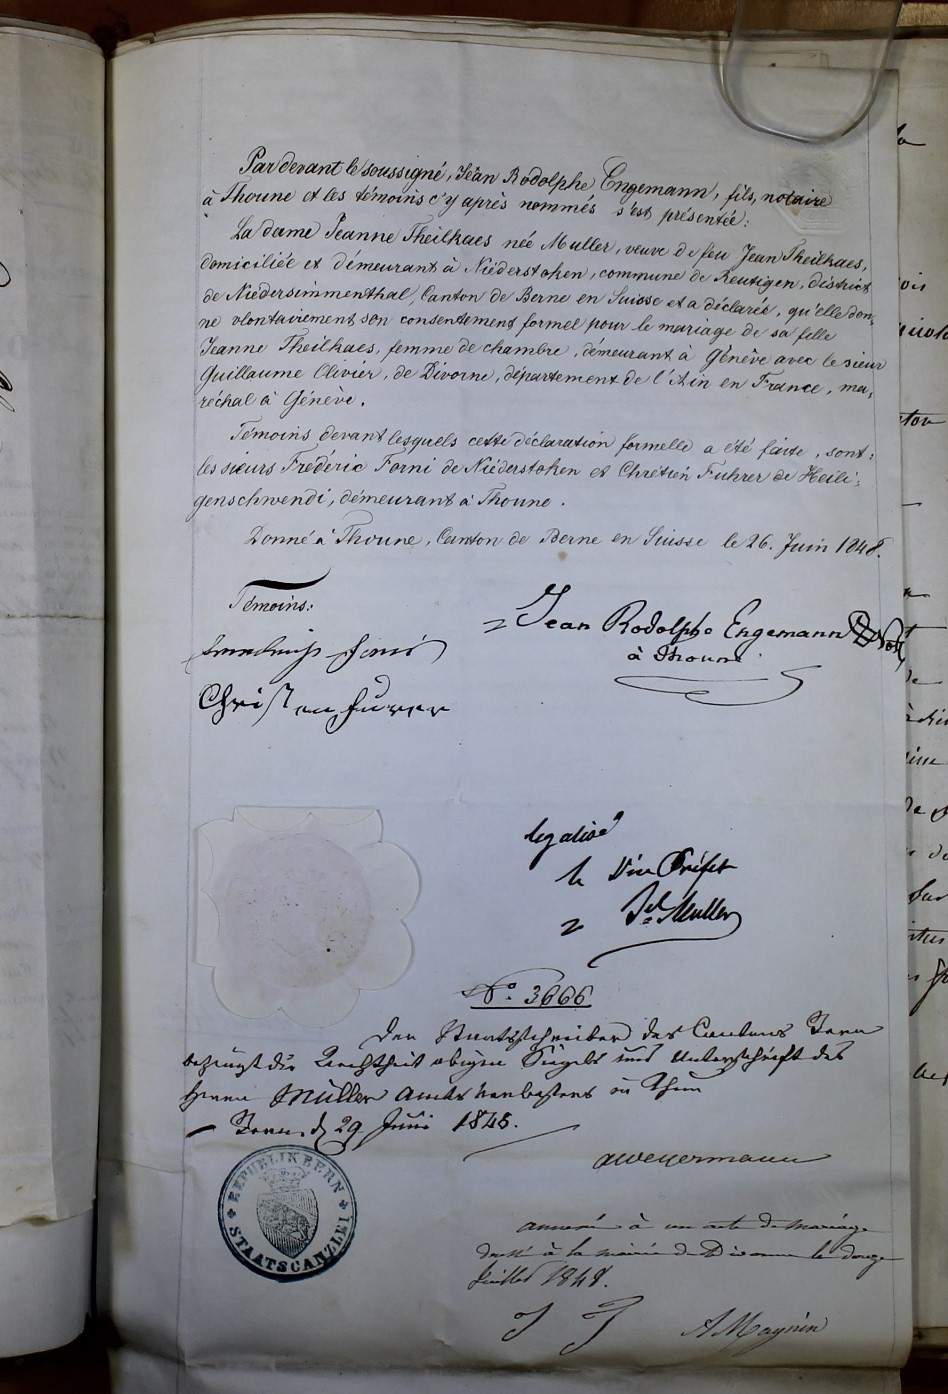 Par devant le soussigné, Jean Rodolphe Engemann, fils, notaire
à Thoune et les témoins c'y après nommés s'est présentée:
La dame Jeanne Theilkaes née Muller, veuve de feu Jean Theilkaes,
domiciliée et démeurant à Niéderstoken, commune de Reutigen, district
de Niedersimmenthal, Canton de Berne en Suisse et a déclarée, qu'elle don-
ne vlontairement son consentement formel pour le mariage de sa fille
Jeanne Theilkaes, femme de chambre, démeurant à Génève avec le sieur
Guillaume Olivier, de Divonne, département de l'Ain en France, ma-
réchal à Génève.
Témoins devant lesquels cette déclaration formelle a été faite, sont:
les sieurs Fréderic Forni de Niéderstoken et Chrétien Fuhrer de Heili-
genschwendi, démeurant à Thoune.
Donné à Thoune, Canton de Berne en Suisse le 26. Juin 1848.
Témoins:
Jean Rodolphe Engemann Not
à Thoune
Christen Furer
legalisé
le Vice Préfet
Muller
No. 3666
Der Staatsschreiber des Cantons Bern
bezeugt die Aechtheit obigen Siegels und Unterschrift des
Herrn Müller Amtsverwesers in Thun
Bern, d 29 Juni 1848.
REPUBLIK BERN
STAATSCANZLEI
annexé à un acte de mariage
dressé à la mairie de Divonne le douze
Juillet 1848.
A Magnin